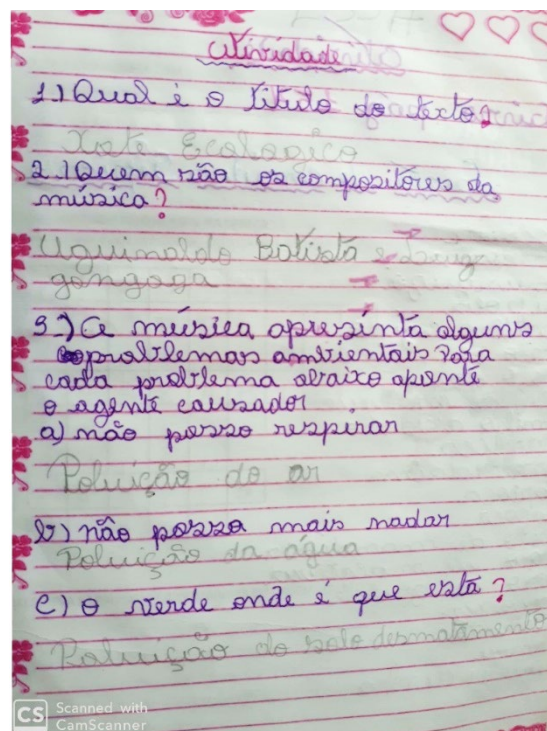 Atividade
1.) Qual é o título do texto?
Xote Ecologico
2.) Quem são os compositores da
música?
Aguinaldo Batista e
gongaga
3-) A música apresenta alguns
problemas ambientais Para
cada problema abaixo aponte
o agente causador
a) não posso respirar
Poluição do ar
b) não posso mais nadar
Poluição da água
c) o verde onde é que está?
Poluição do solo desmatamento
CS Scanned with
CamScanner